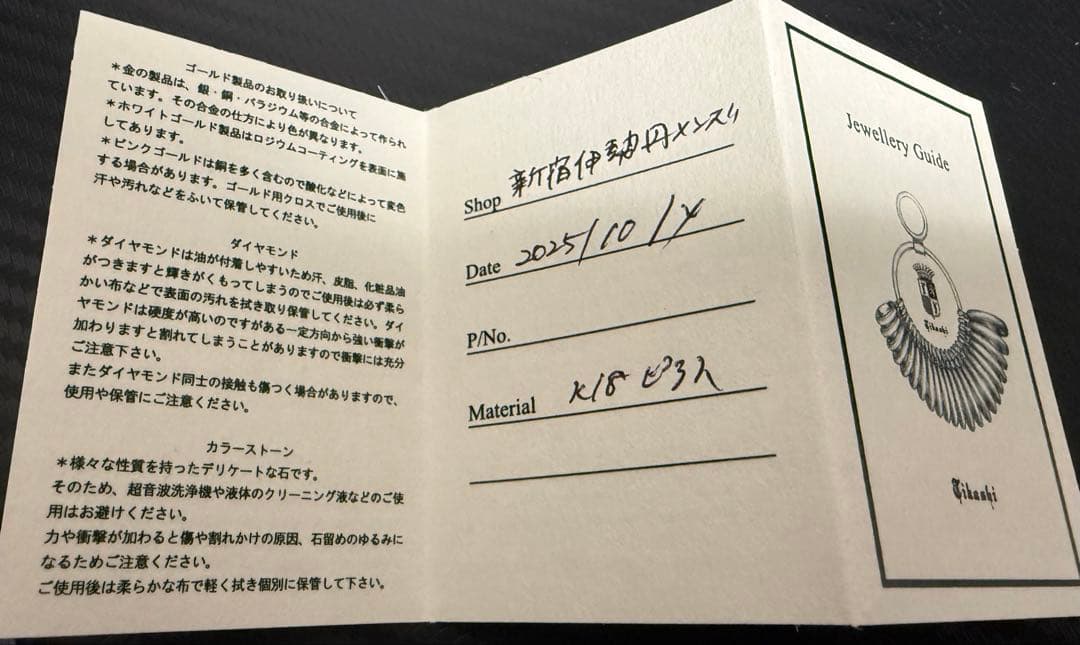 ゴールド製品のお取り扱いについて
＊金の製品は、銀・銅・パラジウム等の合金によって作られ
ています。その合金の仕方により色が異なります。
＊ホワイトゴールド製品はロジウムコーティングを表面に施
してあります。
＊ピンクゴールドは銅を多く含むので酸化などによって変色
する場合があります。ゴールド用クロスでご使用後に
汗や汚れなどをふいて保管してください。
ダイヤモンド
＊ダイヤモンドは油が付着しやすいため汗、皮脂、化粧品油
がつきますと輝きがくもってしまうのでご使用後は必ず柔ら
かい布などで表面の汚れを拭き取り保管してください。ダイ
ヤモンドは硬度が高いのですがある一定方向から強い衝撃が
加わりますと割れてしまうことがありますので衝撃には充分
ご注意下さい。
またダイヤモンド同士の接触も傷つく場合がありますので、
使用や保管にご注意ください。
カラーストーン
＊様々な性質を持ったデリケートな石です。
そのため、超音波洗浄機や液体のクリーニング液などのご使
用はお避けください。
力や衝撃が加わると傷や割れかけの原因、石留めのゆるみに
なるためご注意ください。
ご使用後は柔らかな布で軽く拭き個別に保管して下さい。
Shop 新宿伊勢丹メンズ
Date 2025/10/
P/No.
Material K18 ピアス
Jewellery Guide
Tikashi
Tikashi